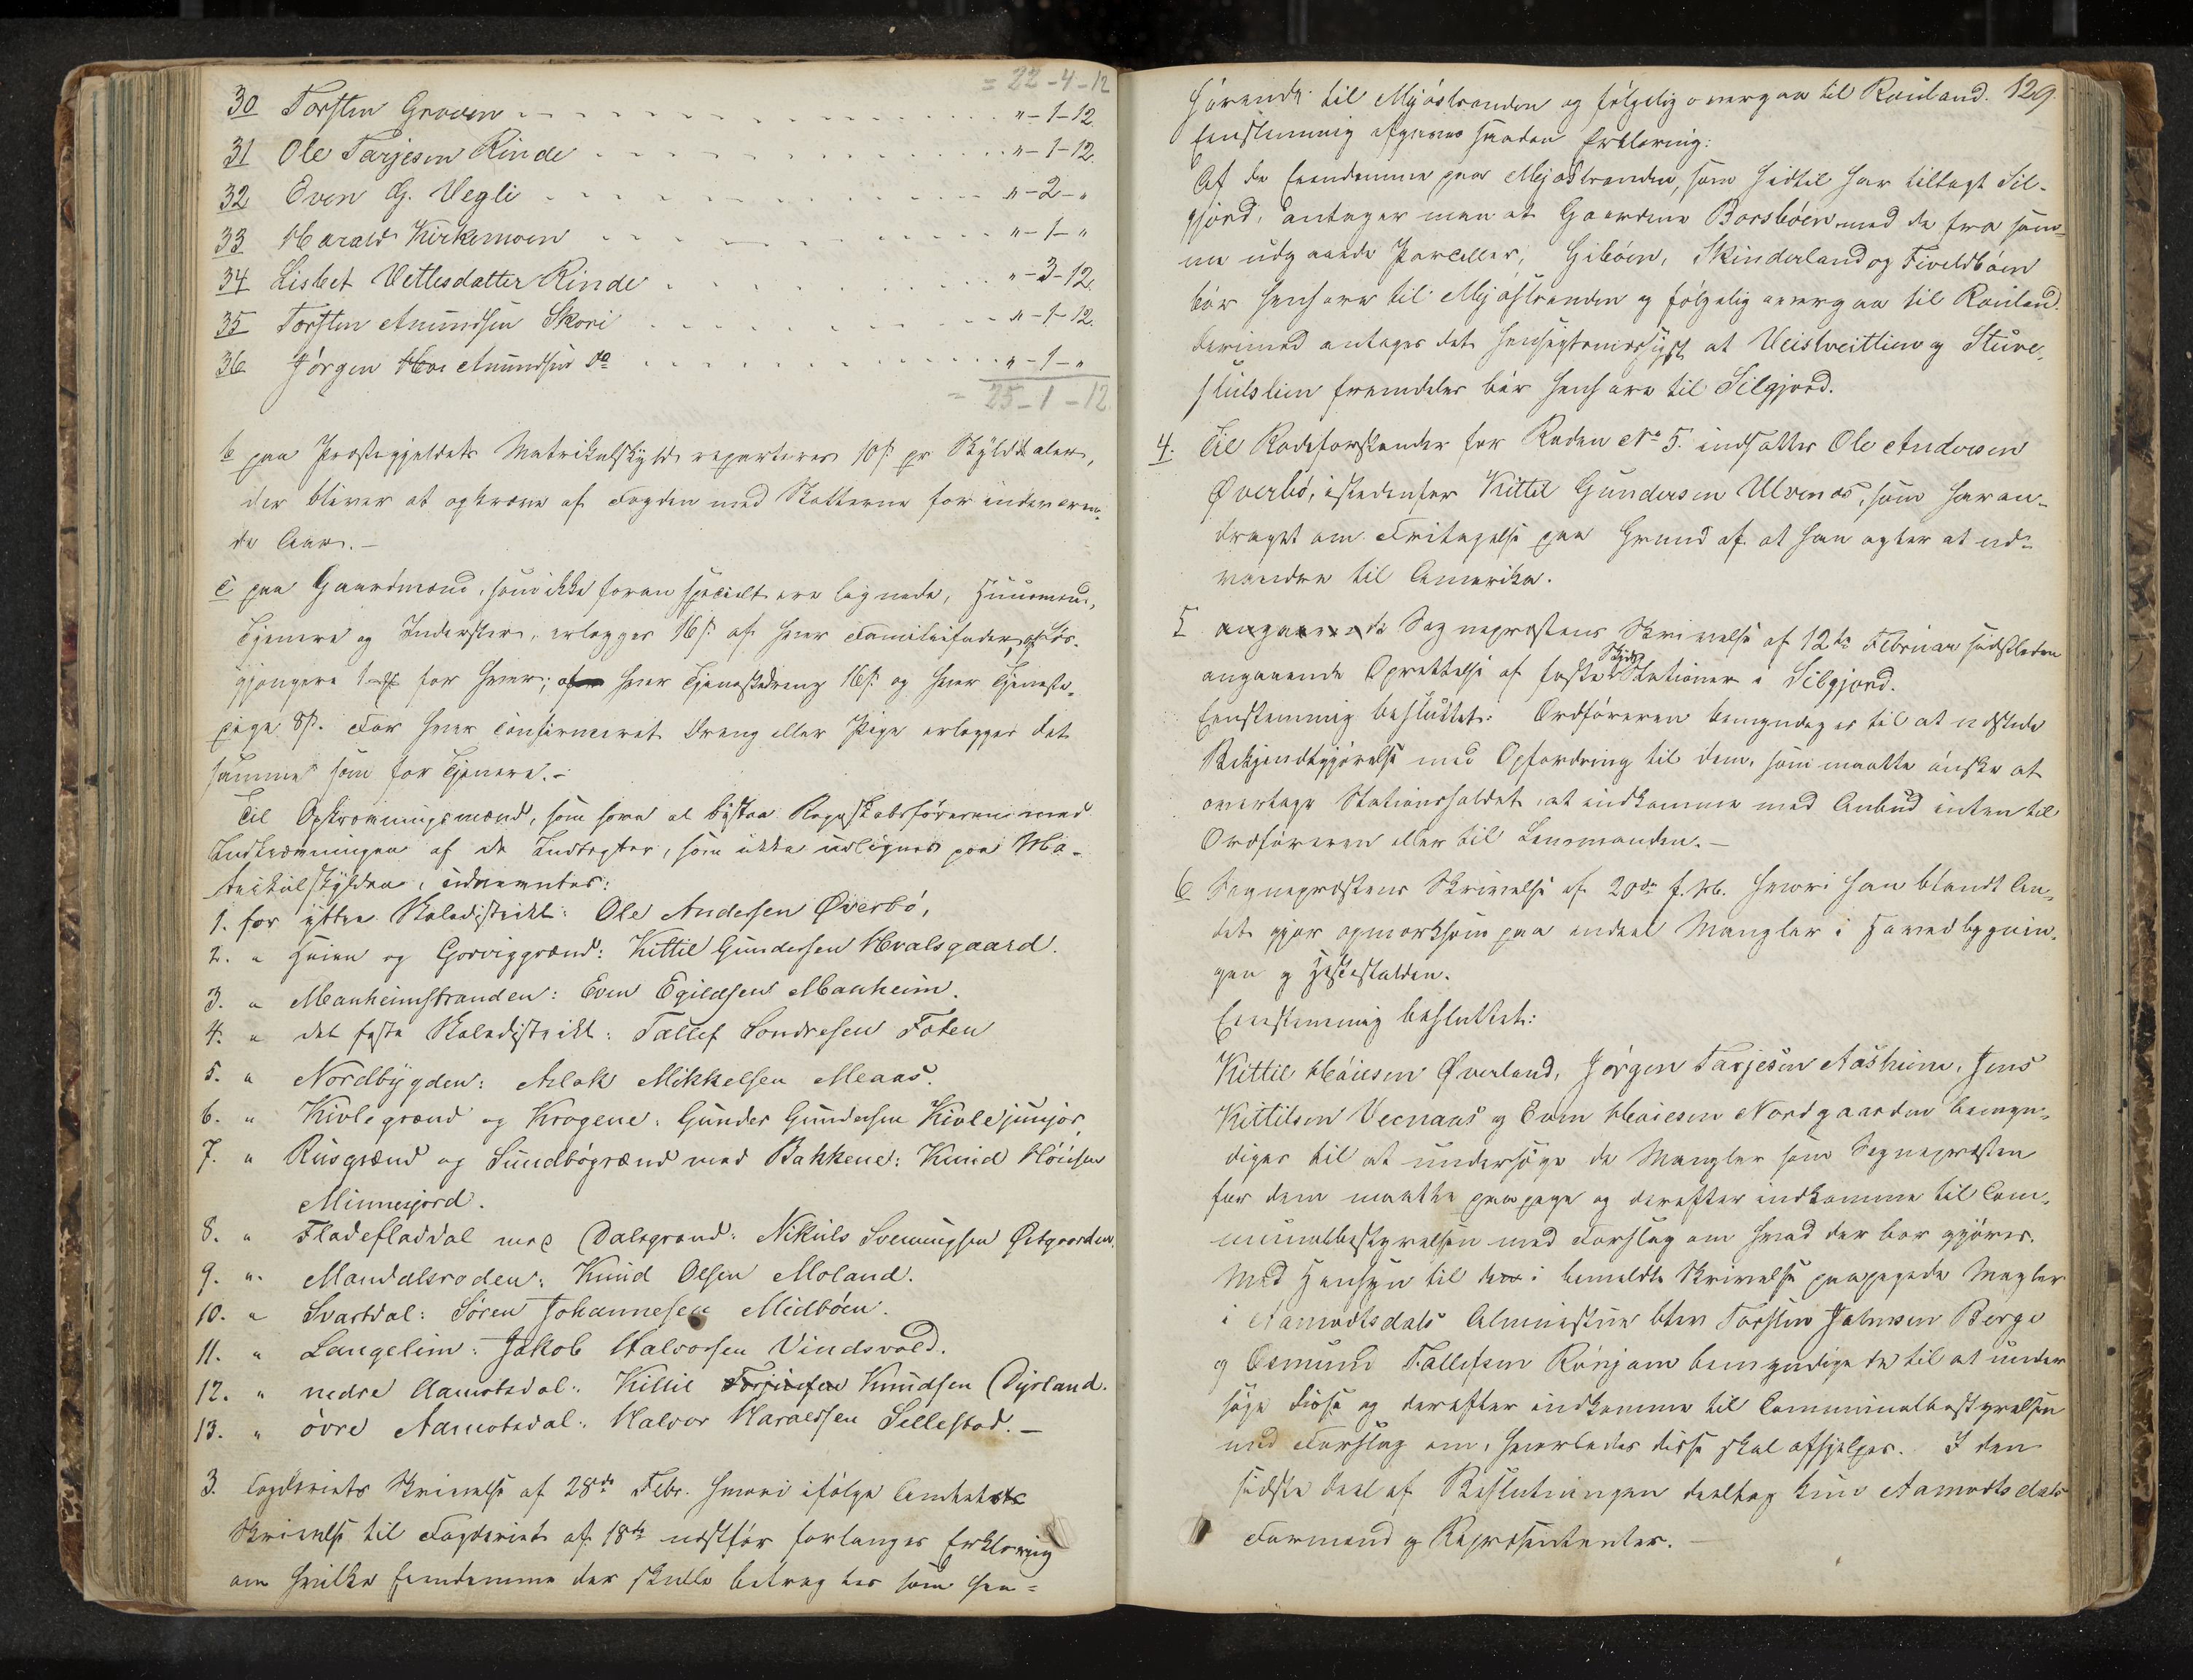 = 22-4-12
30 Torsten Groven - - - "-1-12.
31 Ole Tarjesen Rinde - - - "-1-12.
32 Even G. Vegli - - - "-2-"
33 Harald Kirkemoen - - - "-1-"
34 Lisbet Vetlesdatter Rinde - - - "-3-12.
35 Torsten Amundsen Skori - - - "-1-12.
36 Jörgen Amundsen do - - - "-1-"
= 25-1-12
b paa Præstegjeldets Matrikulskyld reparteres 10 ß pr Skylddaler,
der bliver at opkræve af Fogden med Skatterne for indeværen-
de Aar.-
c paa Gaardmænd, som ikke foran specielt ere lignede, Huusmænd,
Tjenere og Inderster, erlægges 16 ß af hver Familiefader, af Lös-
gjængere 1 for hver; af hver Tjenestedreng 16 ß og hver Tjeneste-
pige 8 ß. For hver confirmeret Dreng eller Pige erlægges det
samme som for Tjenere.-
Til Opkrævningsmænd, som have at bistaa Regnskabsföreren med
Indkrævningen af de Indtægter, som ikke udlignes paa Ma-
trikulskylden, udnævntes:
1. for ydtre Skoledistrikt: Ole Andersen Øverbó,
2. " Heien og Gorviggrænd: Kittil Gundersen Hvalsgaard.
3. " Manheimstranden: Even Egildsen Manheim.
4. " det faste Skoledistrikt: Tallef Sondresen Foten
5. " Nordbygden: Aslak Mikkelsen Meaas.
6. " Kivlegrænd og Krogene: Gunder Gundersen Kivle junior
7. " Rusgrænd og Sundbógrænd med Bakkene: Knud Höiesen
Minnesjord.
8. " Fladefladdal med Dalsgrænd: Nikuls Svenningsen Øtgaarden.
9. " Mandalsroden: Knud Olsen Moland.
10. " Svartdal: Sören Johannesen Midböen.
11. " Langelim: Jakob Halvorsen Vindsvold.
12. " nedre Aamotsdal: Kittil Knudsen Dyrland.
13. " övre Aamotsdal: Halvor Haraldsen Sellestad.-
3. Fogderiets Skrivelse af 28de Febr. hvori ifölge Amtets
Skrivelse til Fogderiet af 18de næstfør forlanges Erklæring
om hvilke Eiendomme der skulle betragtes som hen=
129.
hörende til Mjöstranden og fölgelig overgaa til Rauland.
Eenstemmig afgaves saadan Erklæring:
Af de Eiendomme paa Mjöstranden, som hidtil har tillagt Sil-
gjord, antager man at Gaardene Borsböen med de fra sam-
me udgaaede Parceller, Giböen, Skinderland og Fiveldböen
bör henhøre til Mjöstranden og fölgelig overgaa til Rauland.
derimod antages det hensigtsmæssigst at Veistveitlien og Sture-
stulslien fremdeles bör henhøre til Silgjord.
4. Til Rodeforstander for Roden No 5. indsattes Ole Andersen
Øverbó, istedenfor Kittil Gundersen Ulvenæs, som har an-
draget om Fritagelse paa Grund af at han agter at ud-
vandre til Amerika.
5 angaaende Sognepræstens Skrivelse af 12te Februar sidstleden
angaaende Oprettelse af faste Skyds Stationer i Silgjord.
Eenstemmig besluttet: Ordföreren bemyndiges til at udstede
Bekjendtgjörelse med Opfordring til dem, som maatte önske at
overtage Stationsholdet, at indkomme med Anbud enten til
Ordföreren eller til Lensmanden.-
6 Sognepræstens Skrivelse af 20de f. M. hvori han blandt An-
det gjör opmærksom paa endeel Mangler i Hovedbygnin-
gen og Hestestalden.
Eenstemmig besluttet:
Kittil Höiesen Øverland, Jörgen Tarjesen Aasheim, Jens
Kittilsen Veenaas og Even Höiesen Nordgaarden bemyn-
diges til at undersöge de Mangler som Sognepræsten
for dem maatte paapege og derefter indkomme til Com-
munalbestyrelsen med Forslag om hvad der bör gjöres.
Med Hensyn til de i bemeldte Skrivelse paapegede Mangler
i Aamodtsdals Almuestue blev Torsten Jalmsen Berge
og Osmund Tallefsen Rönjom bemyndigede til at under
söge disse og derefter indkomme til Communalbestyrelsen
med Forslag om, hvorledes disse skal afhjelpes. I den
sidste Deel af Beslutningen deeltog kun Aamodtsdals
Formænd og Repræsentanter.-